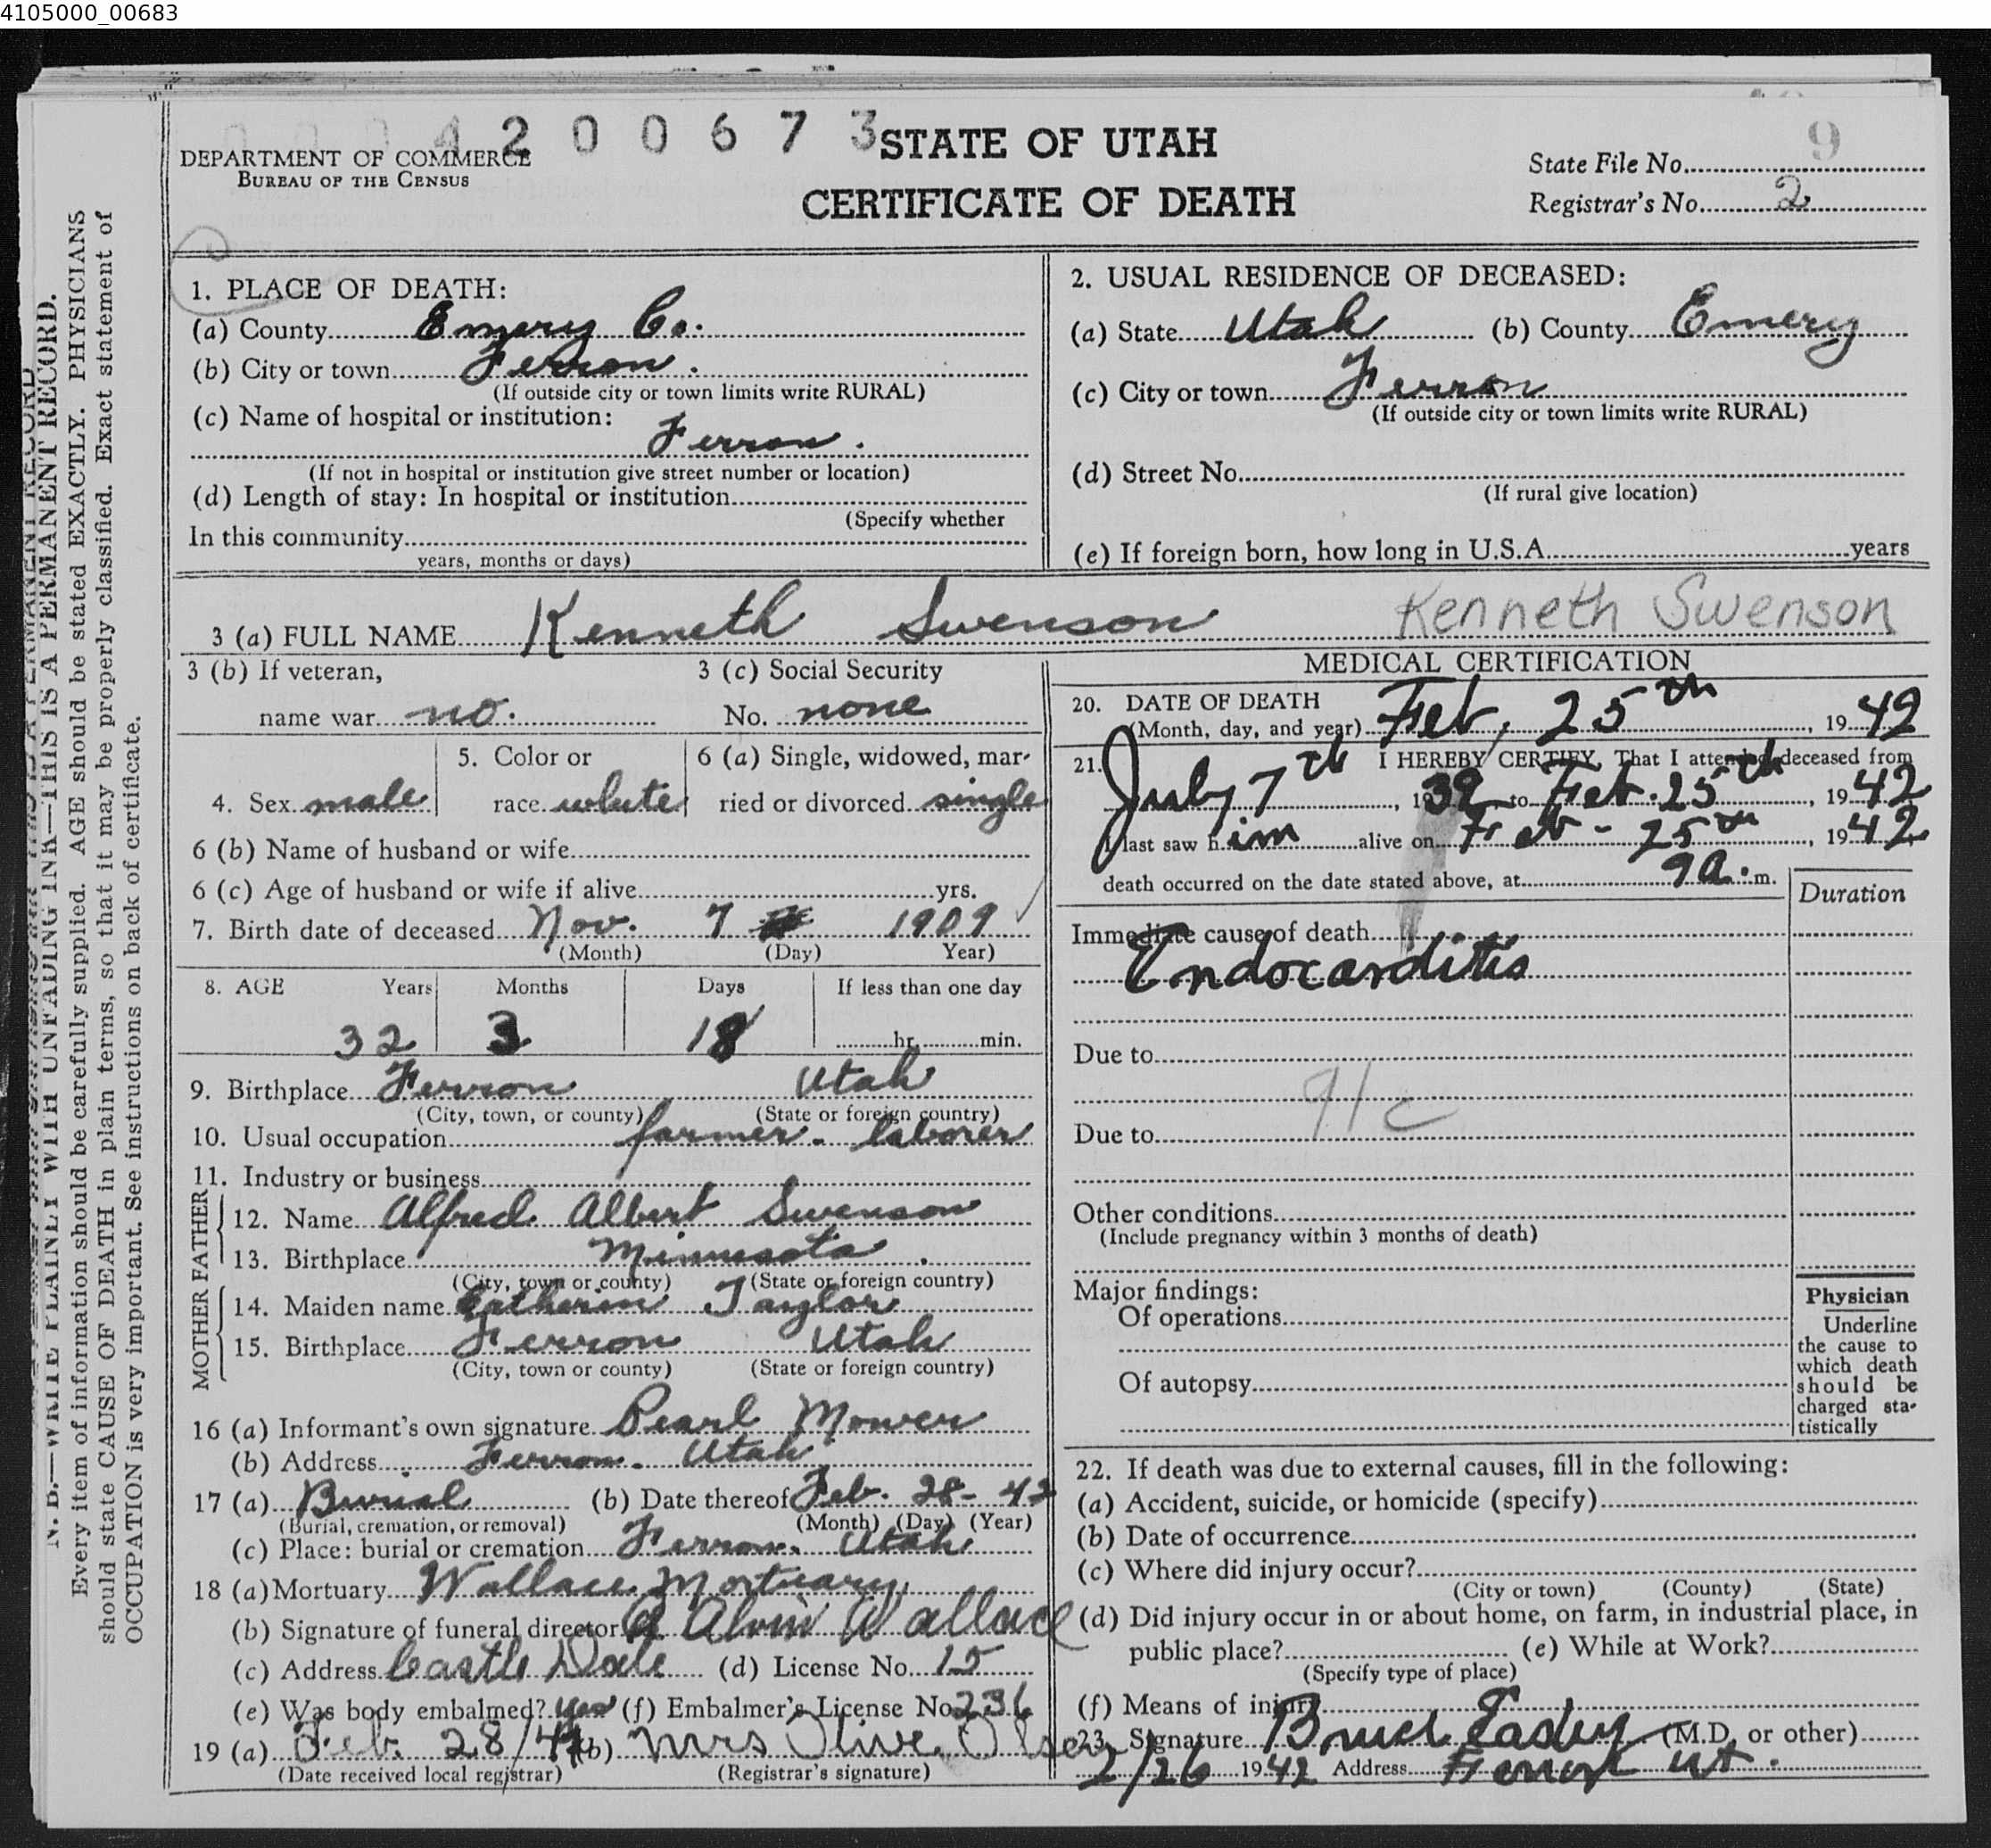 4105000_00683
4 2 0 0 6 7 3
DEPARTMENT OF COMMERCE
BUREAU OF THE CENSUS
STATE OF UTAH
CERTIFICATE OF DEATH
State File No. 9
Registrar's No. 2
N. B.—WRITE PLAINLY WITH UNFADING INK—THIS IS A PERMANENT RECORD.
Every item of information should be carefully supplied. AGE should be stated EXACTLY. PHYSICIANS
should state CAUSE OF DEATH in plain terms, so that it may be properly classified. Exact statement of
OCCUPATION is very important. See instructions on back of certificate.
1. PLACE OF DEATH:
(a) County Emery Co.
(b) City or town Ferron.
(If outside city or town limits write RURAL)
(c) Name of hospital or institution:
Ferron.
(If not in hospital or institution give street number or location)
(d) Length of stay: In hospital or institution
(Specify whether
In this community
years, months or days)
2. USUAL RESIDENCE OF DECEASED:
(a) State Utah (b) County Emery
(c) City or town Ferron
(If outside city or town limits write RURAL)
(d) Street No.
(If rural give location)
(e) If foreign born, how long in U.S.A. years
3 (a) FULL NAME Kenneth Swenson Kenneth Swenson
3 (b) If veteran,
name war no.
3 (c) Social Security
No. none
4. Sex male
5. Color or
race white
6 (a) Single, widowed, mar-
ried or divorced single
6 (b) Name of husband or wife
6 (c) Age of husband or wife if alive yrs.
7. Birth date of deceased Nov. 7 1909
(Month) (Day) Year)
8. AGE Years Months Days If less than one day
32 3 18 hr. min.
9. Birthplace Ferron Utah
(City, town, or county) (State or foreign country)
10. Usual occupation farmer - laborer
11. Industry or business
FATHER
12. Name Alfred Albert Swenson
13. Birthplace Minnesota
(City, town or county) (State or foreign country)
MOTHER
14. Maiden name Catherin Taylor
15. Birthplace Ferron Utah
(City, town or county) (State or foreign country)
16 (a) Informant's own signature Pearl Mower
(b) Address Ferron. Utah
17 (a) Burial (b) Date thereof Feb. 28- 42
(Burial, cremation, or removal) (Month) (Day) (Year)
(c) Place: burial or cremation Ferron. Utah
18 (a) Mortuary Wallace Mortuary
(b) Signature of funeral director A. Alvin Wallace
(c) Address Castle Dale (d) License No. 15
(e) Was body embalmed? yes (f) Embalmer's License No. 236
19 (a) Feb. 28/42 (b) Mrs Olive Olsen
(Date received local registrar) (Registrar's signature)
MEDICAL CERTIFICATION
20. DATE OF DEATH
(Month, day, and year) Feb, 25th, 1942
21. I HEREBY CERTIFY, That I attended deceased from
July 7th, 1939 to Feb. 25th, 1942
I last saw him alive on Feb - 25th, 1942
death occurred on the date stated above, at 9a.m.
Duration
Immediate cause of death
Endocarditis
Due to
91c
Due to
Other conditions
(Include pregnancy within 3 months of death)
Major findings:
Of operations
Of autopsy
Physician
Underline
the cause to
which death
should be
charged sta-
tistically
22. If death was due to external causes, fill in the following:
(a) Accident, suicide, or homicide (specify)
(b) Date of occurrence
(c) Where did injury occur?
(City or town) (County) (State)
(d) Did injury occur in or about home, on farm, in industrial place, in
public place? (e) While at Work?
(Specify type of place)
(f) Means of injury
23. Signature Bruce Easley (M.D. or other)
2/26 1942 Address Ferron Ut.